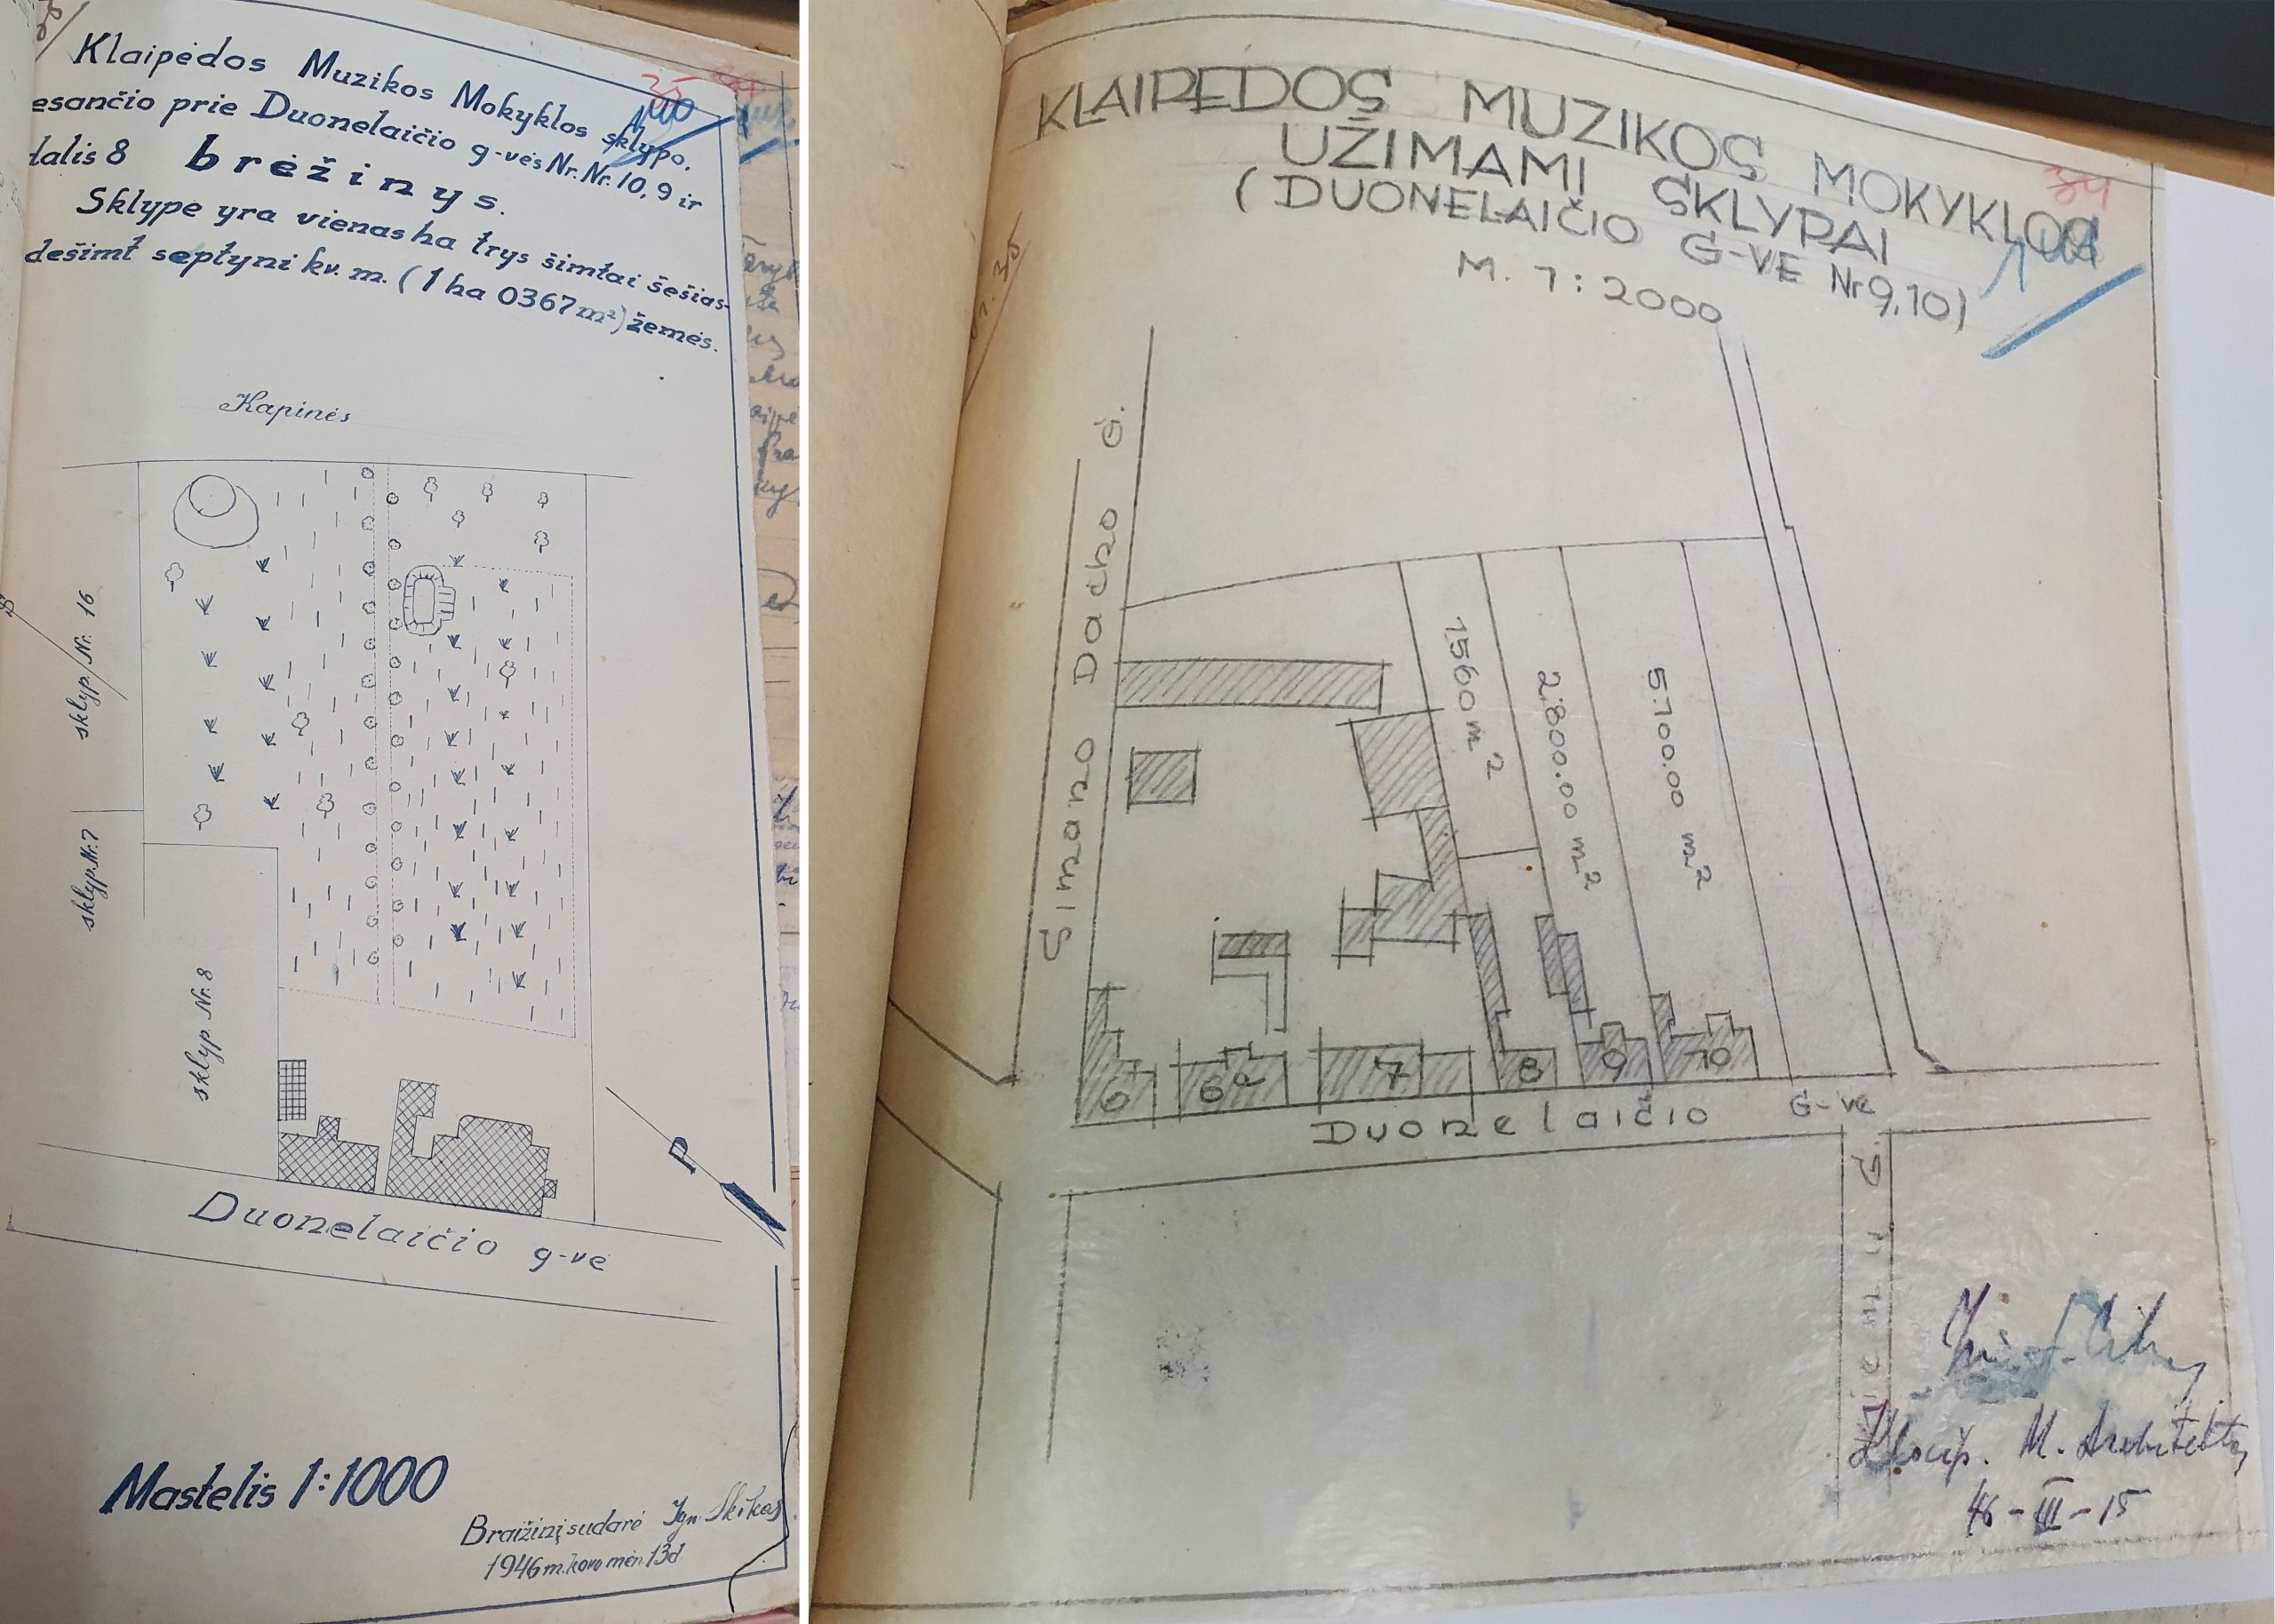 Klaipėdos Muzikos Mokyklos sklypo,
esančio prie Duonelaičio g-vės Nr. Nr. 10, 9 ir
dalis 8 brėžinys.
Sklype yra vienas ha trys šimtai šešias-
dešimt septyni kv. m. (1 ha 0367 m²) žemės.
Kapinės
sklyp. Nr. 16
sklyp. Nr. 7
sklyp. Nr. 8
P
Duonelaičio g-vė
Mastelis 1:1000
Braižinį sudarė Ign. Skikas
1946 m. kovo mėn. 13 d
KLAIPEDOS MUZIKOS MOKYKLOS
UŽIMAMI SKLYPAI
(DUONELAIČIO G-VE Nr 9, 10)
M. 1:2000
34
Simano Dacho G.
1560 m²
2.800.00 m²
5.100.00 m²
6
6a
7
8
9
10
Duonelaičio G-ve
Klaip. M. Architektas
46-III-15